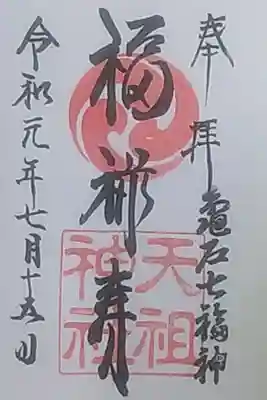 奉拝
亀戸七福神
福祿寿
天祖
神社
令和元年七月十五日